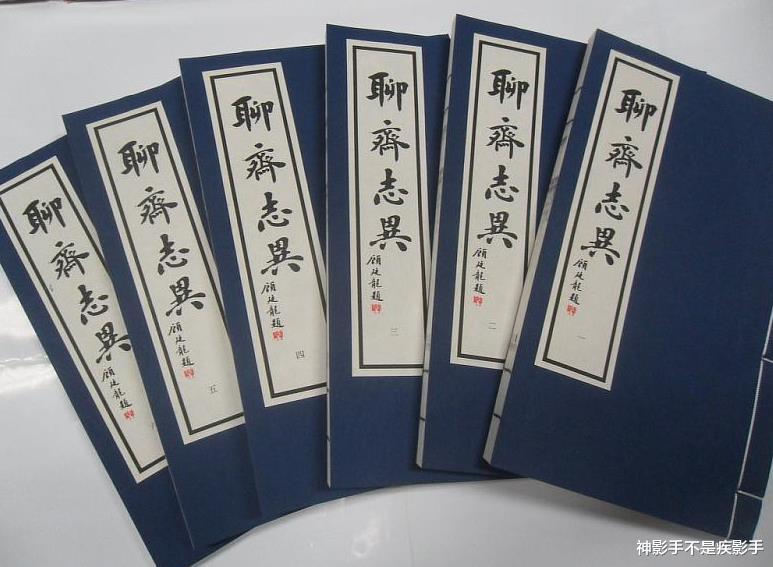 聊齋志異
顧廷龍題
一
聊齋志異
顧廷龍題
二
聊齋志異
顧廷龍題
三
聊齋志異
顧廷龍題
四
聊齋志異
顧廷龍題
五
聊齋志異
顧廷龍題
神影手不是疾影手